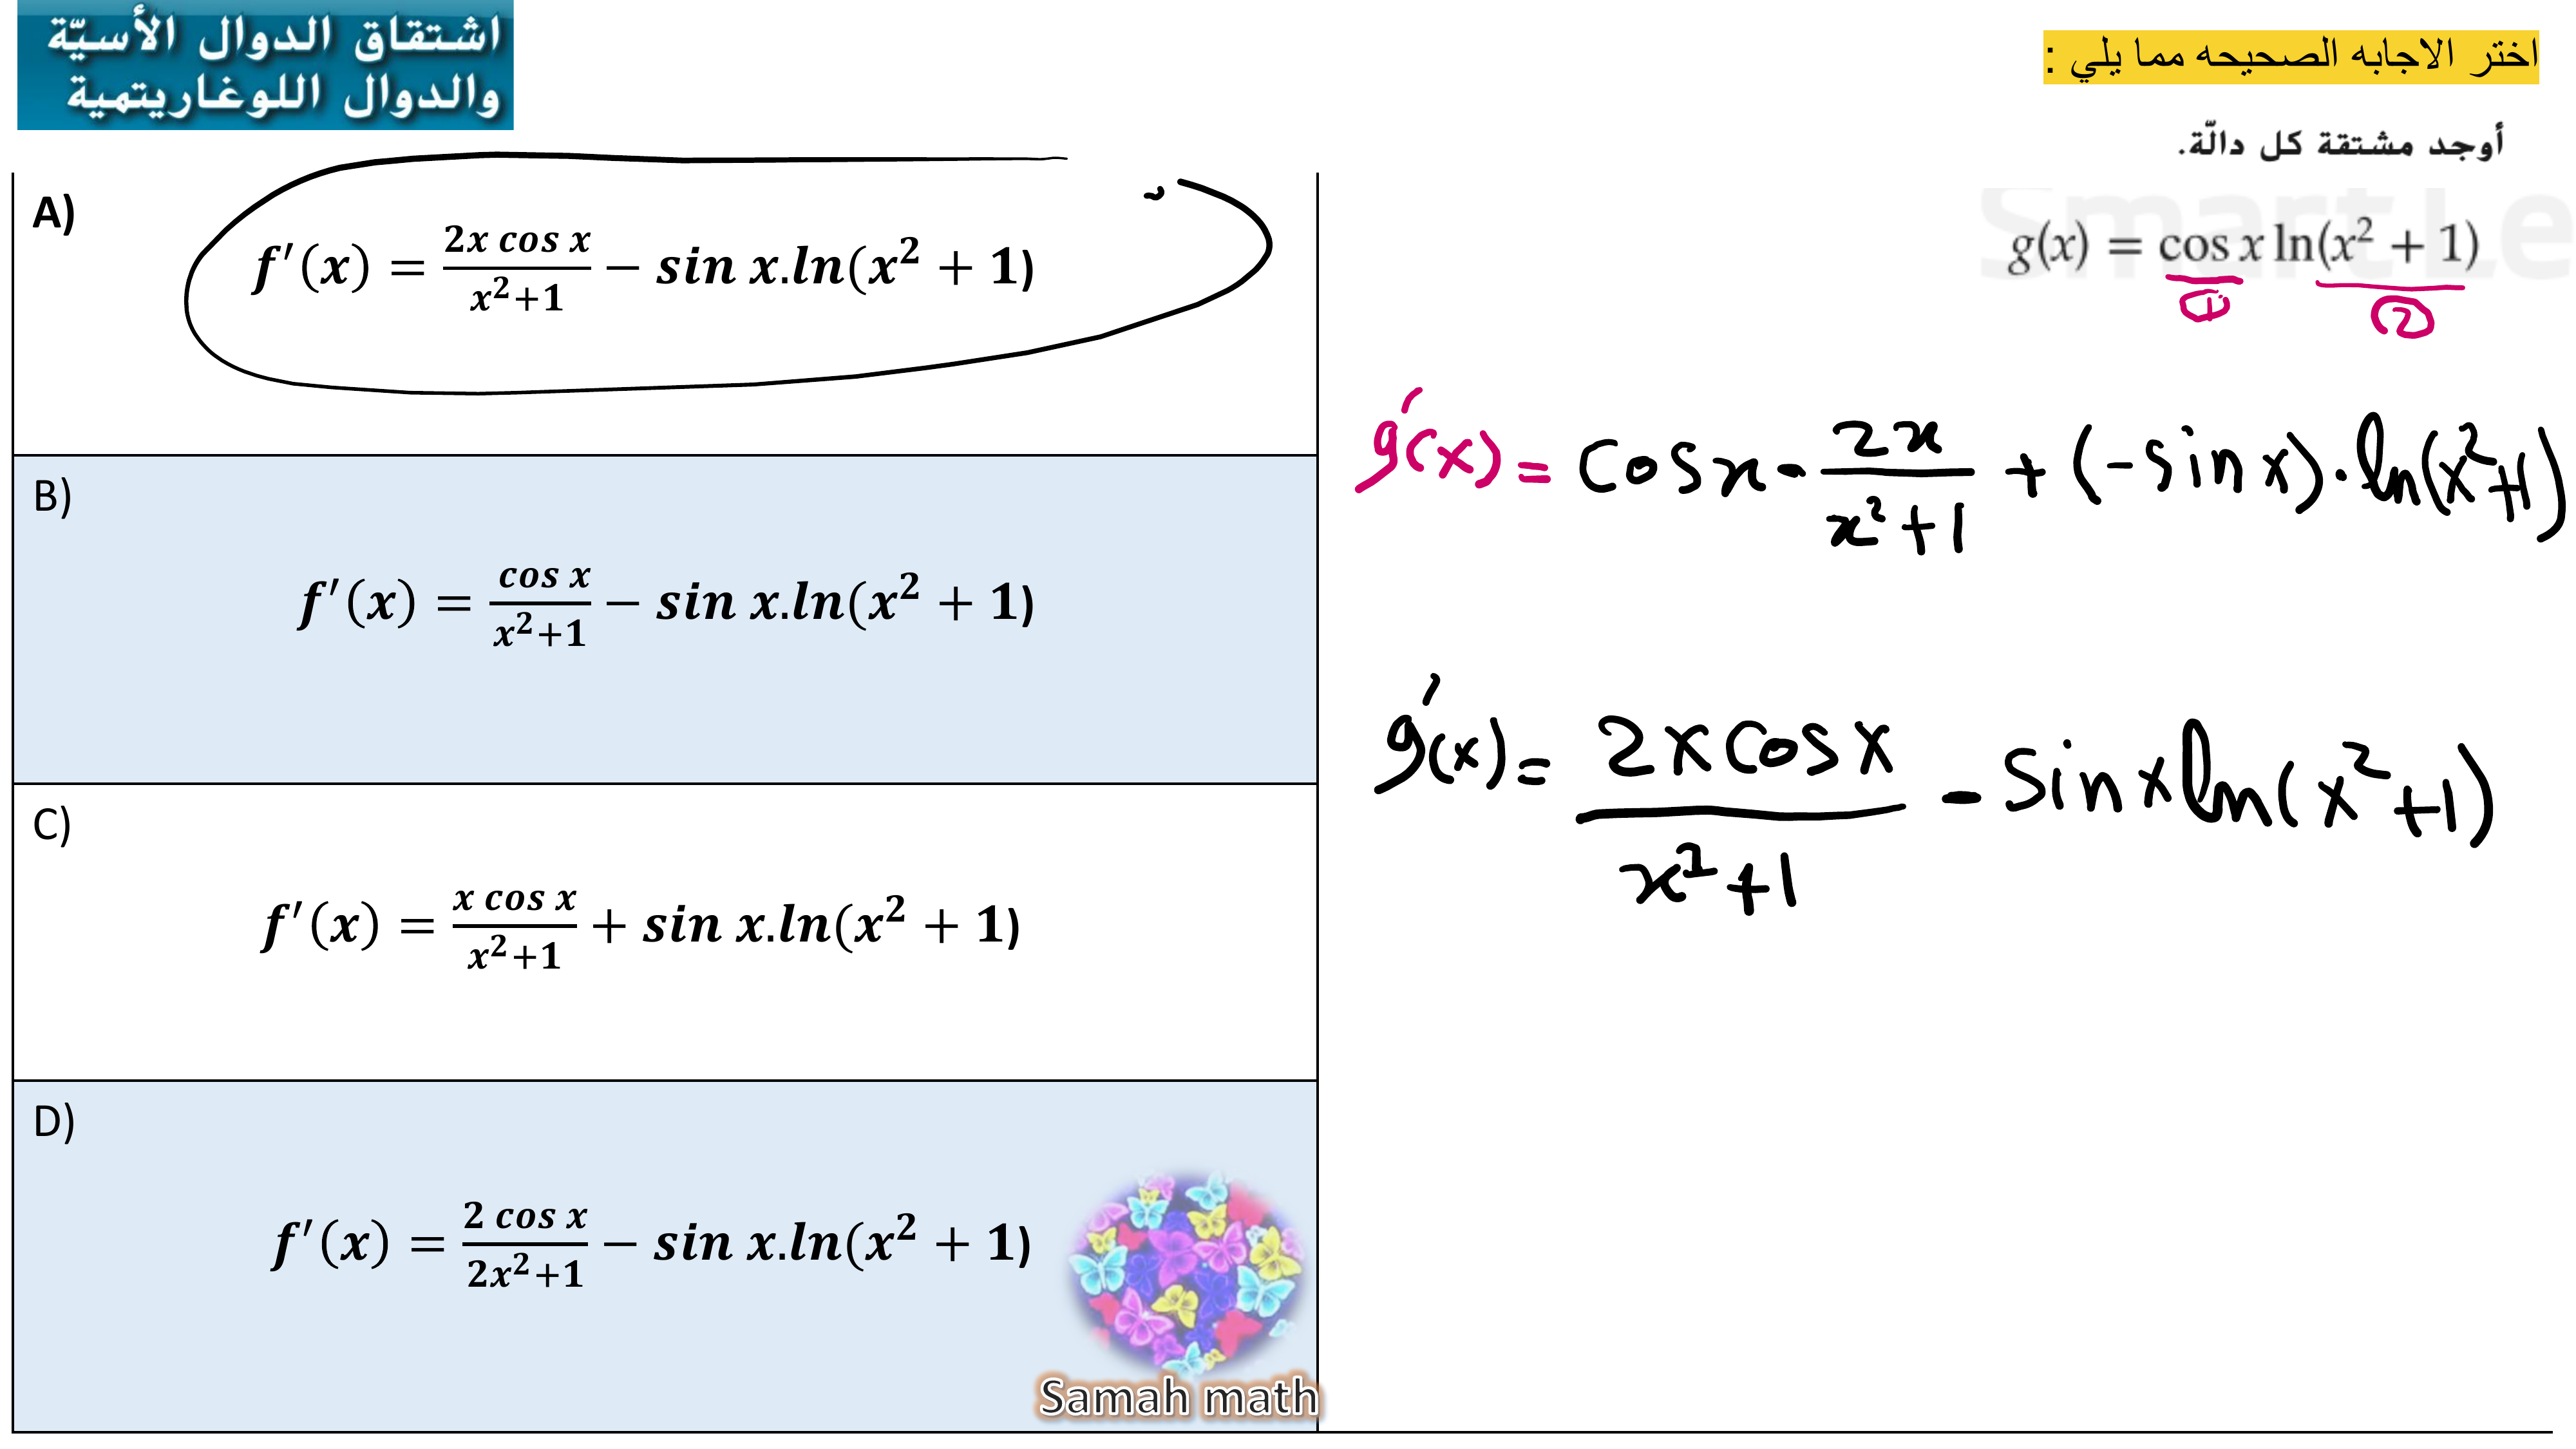 اشتقاق الدوال الأسيّة
والدوال اللوغاريتمية
اختر الاجابه الصحيحه مما يلي :
أوجد مشتقة كل دالّة.
Smart Le
g(x) = cos x ln(x² + 1)
① ②
g'(x) = cos x · 2x/(x²+1) + (-sin x) · ln(x²+1)
g'(x) = 2x cos x/(x²+1) - sin x ln(x²+1)
A)
f′(x) = 2x cos x/(x²+1) − sin x.ln(x² + 1)
B)
f′(x) = cos x/(x²+1) − sin x.ln(x² + 1)
C)
f′(x) = x cos x/(x²+1) + sin x.ln(x² + 1)
D)
f′(x) = 2 cos x/(2x²+1) − sin x.ln(x² + 1)
Samah math